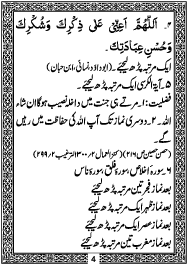 ۴۔ اَللّٰهُمَّ اَعِنِّیْ عَلٰی ذِکْرِكَ وَشُكْرِكَ
وَحُسْنِ عِبَادَتِكَ
ایک مرتبہ پڑھ لیجئے۔ (ابوداؤد، نسائی، ابن حبان)
۵۔ آیۃ الکرسی ایک مرتبہ پڑھ لیجئے
فضیلت: ۱۔ مرتے ہی جنت میں داخلہ نصیب ہوگا ان شاء
اللہ۔ ۲۔ دوسری نماز تک آپ اللہ کی حفاظت میں رہیں
گے۔
۶۔ سورۃ اخلاص، سورۃ فلق، سورۃ ناس
بعد نماز فجر تین مرتبہ پڑھ لیجئے
بعد نماز ظہر ایک مرتبہ پڑھ لیجئے
بعد نماز عصر ایک مرتبہ پڑھ لیجئے
بعد نماز مغرب تین مرتبہ پڑھ لیجئے
4